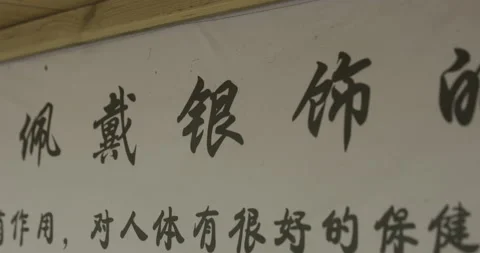 佩戴银饰的
有作用，对人体有很好的保健